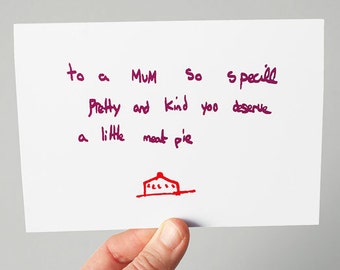 to a MuM so specill
Pretty and kind yoo deserve
a little meat pie